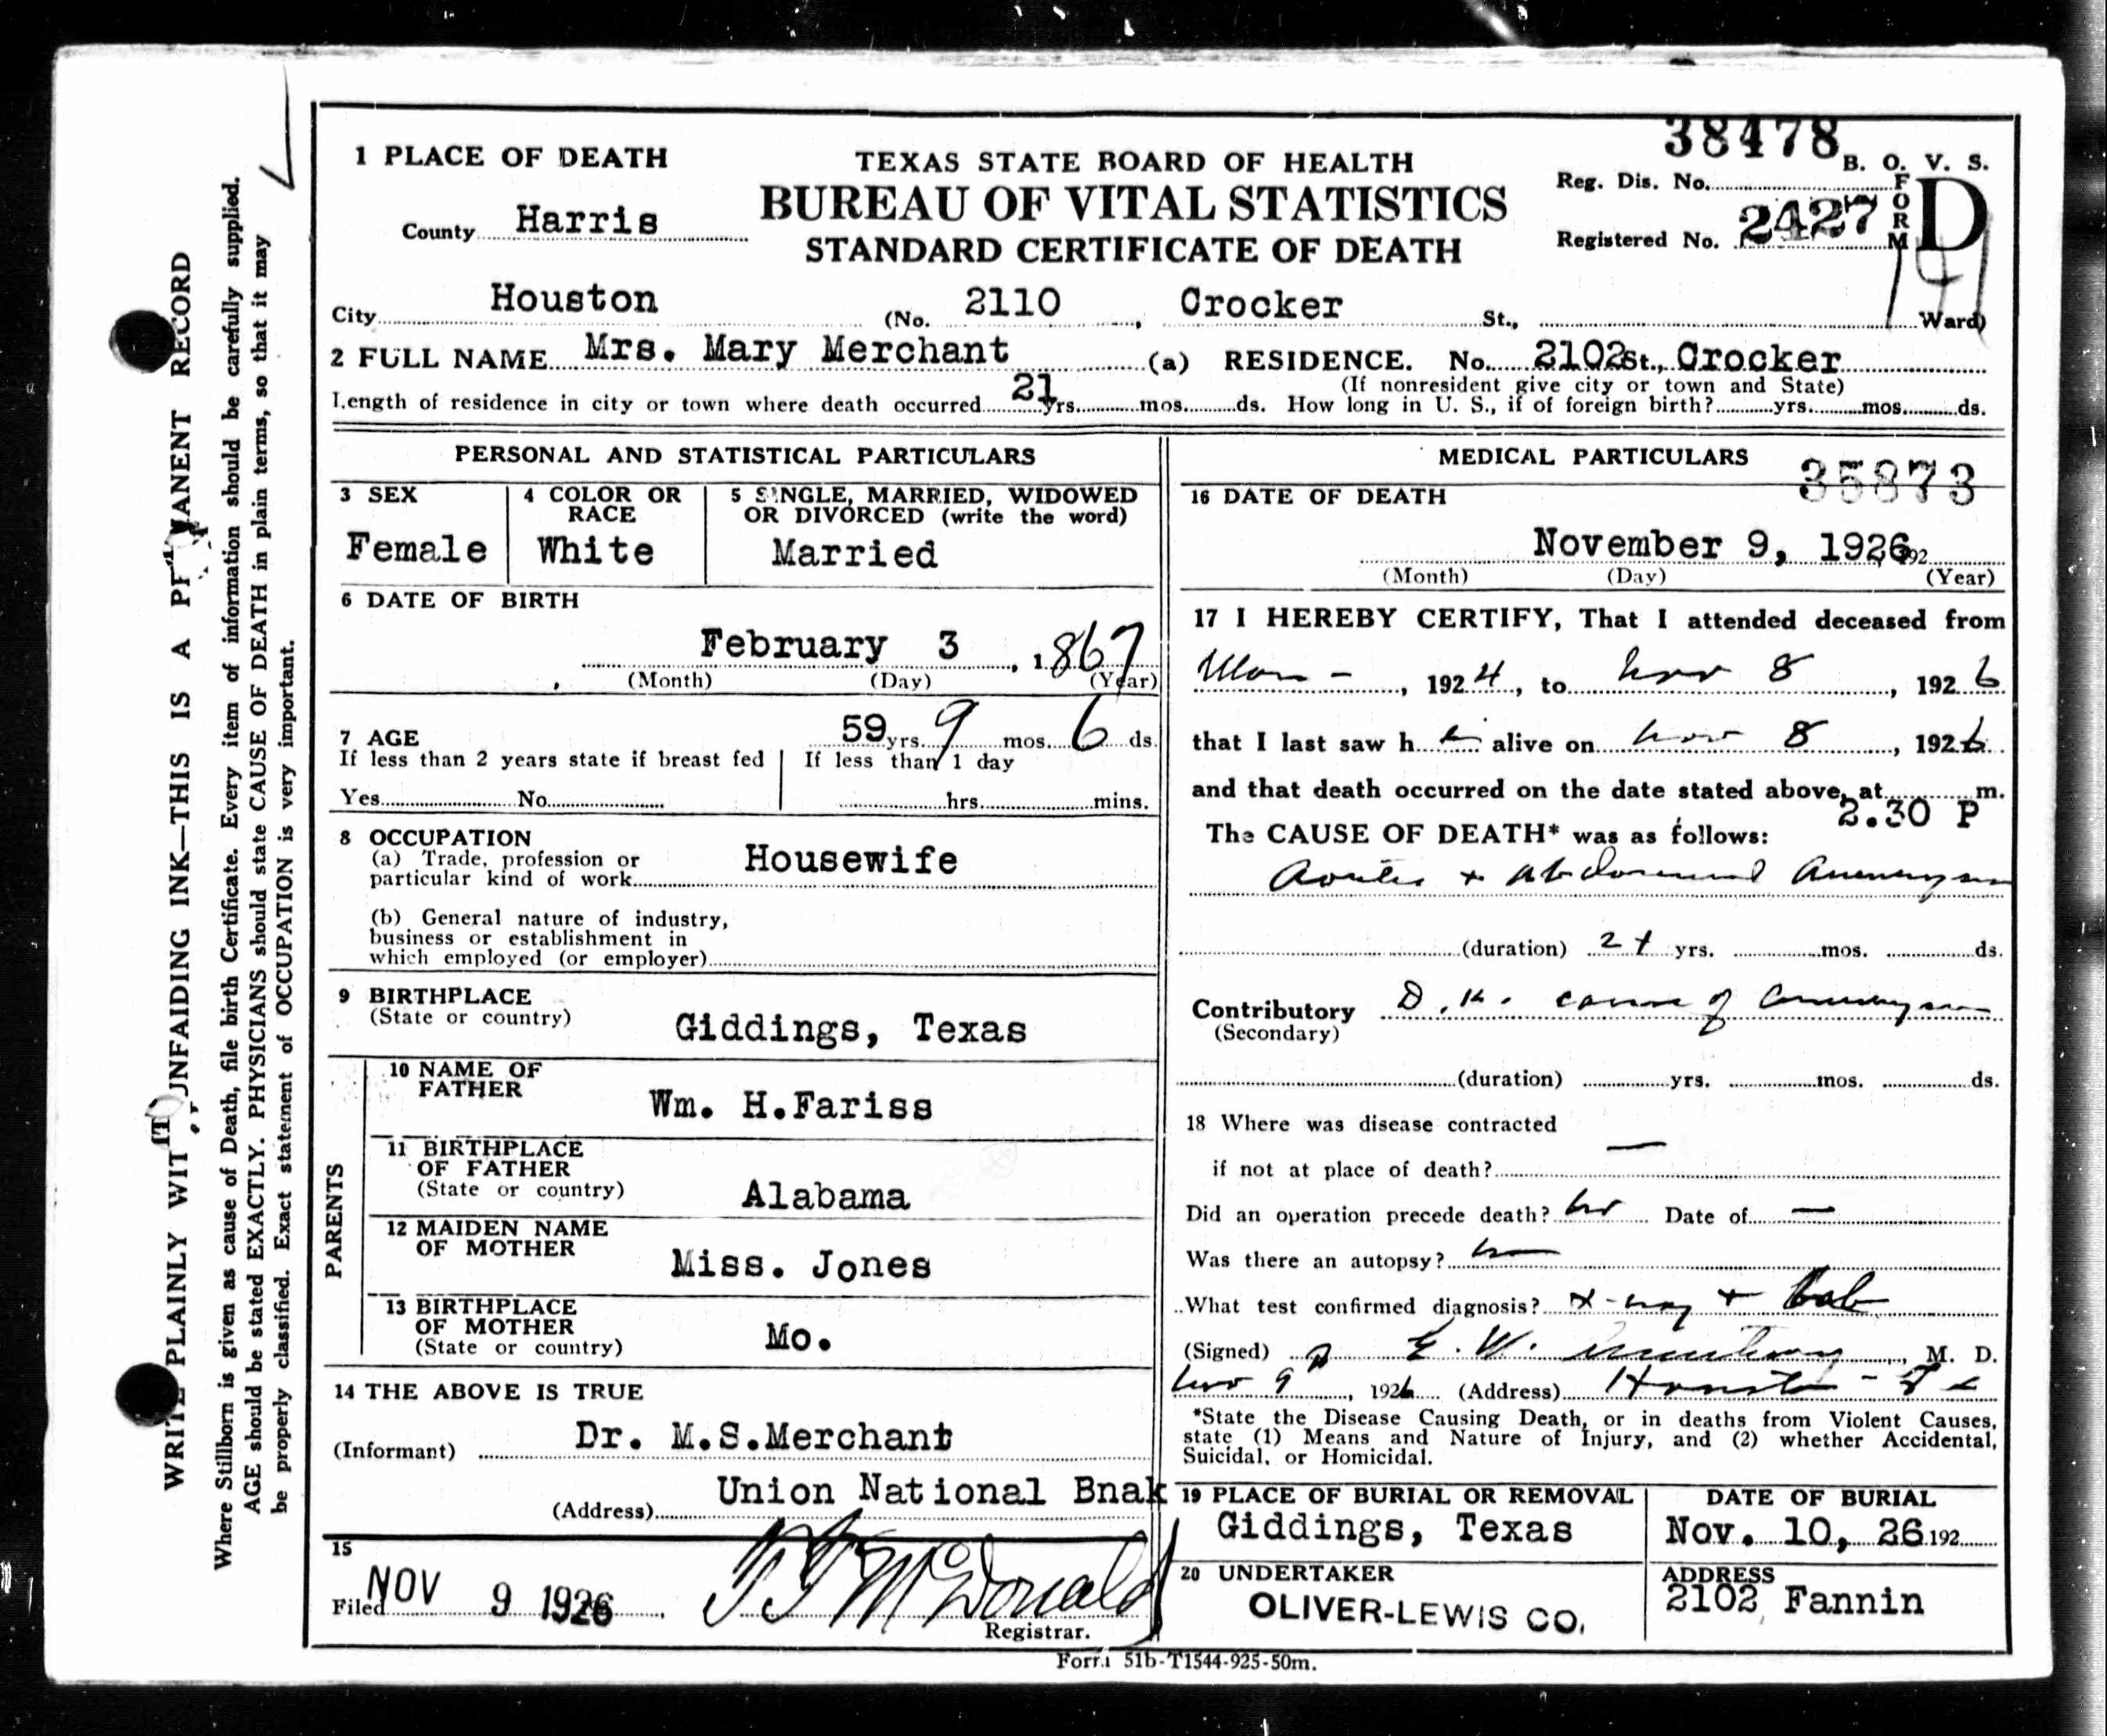 38478
1 PLACE OF DEATH
TEXAS STATE BOARD OF HEALTH
B. O. V. S.
Reg. Dis. No.
County Harris
BUREAU OF VITAL STATISTICS
FORM D
STANDARD CERTIFICATE OF DEATH
Registered No. 2427
City Houston (No. 2110, Crocker St., Ward)
2 FULL NAME Mrs. Mary Merchant (a) RESIDENCE. No. 2102 St., Crocker
(If nonresident give city or town and State)
Length of residence in city or town where death occurred 21 yrs. mos. ds. How long in U. S., if of foreign birth? yrs. mos. ds.
PERSONAL AND STATISTICAL PARTICULARS
3 SEX
Female
4 COLOR OR RACE
White
5 SINGLE, MARRIED, WIDOWED
OR DIVORCED (write the word)
Married
6 DATE OF BIRTH
February 3, 1867
(Month) (Day) (Year)
7 AGE 59 yrs. 9 mos. 6 ds.
If less than 2 years state if breast fed
Yes No
If less than 1 day
hrs. mins.
8 OCCUPATION
(a) Trade, profession or
particular kind of work Housewife
(b) General nature of industry,
business or establishment in
which employed (or employer)
9 BIRTHPLACE
(State or country) Giddings, Texas
PARENTS
10 NAME OF
FATHER Wm. H.Fariss
11 BIRTHPLACE
OF FATHER
(State or country) Alabama
12 MAIDEN NAME
OF MOTHER Miss. Jones
13 BIRTHPLACE
OF MOTHER
(State or country) Mo.
14 THE ABOVE IS TRUE
(Informant) Dr. M.S.Merchant
(Address) Union National Bnak
15
Filed NOV 9 1926 McDonald
Registrar.
MEDICAL PARTICULARS
35873
16 DATE OF DEATH
November 9, 1926 192
(Month) (Day) (Year)
17 I HEREBY CERTIFY, That I attended deceased from
, 1924, to Nov 8, 1926
that I last saw h alive on Nov 8, 1926
and that death occurred on the date stated above, at m.
2.30 P
The CAUSE OF DEATH* was as follows:
+ Abdominal Aneurysm
(duration) 2+ yrs. mos. ds.
Contributory D.K. cause of Aneurysm
(Secondary)
(duration) yrs. mos. ds.
18 Where was disease contracted
if not at place of death? —
Did an operation precede death? no Date of —
Was there an autopsy? no
What test confirmed diagnosis? X-ray + Lab
(Signed) E. W. M. D.
Nov 9, 1926 (Address) Houston - Tx
*State the Disease Causing Death, or in deaths from Violent Causes,
state (1) Means and Nature of Injury, and (2) whether Accidental,
Suicidal, or Homicidal.
19 PLACE OF BURIAL OR REMOVAL
Giddings, Texas
DATE OF BURIAL
Nov. 10, 26 192
20 UNDERTAKER
OLIVER-LEWIS CO.
ADDRESS
2102 Fannin
Form 51b-T1544-925-50m.
WRITE PLAINLY WITH UNFAIDING INK—THIS IS A PERMANENT RECORD
Where Stillborn is given as cause of Death, file birth Certificate. Every item of information should be carefully supplied.
AGE should be stated EXACTLY. PHYSICIANS should state CAUSE OF DEATH in plain terms, so that it may
be properly classified. Exact statement of OCCUPATION is very important.